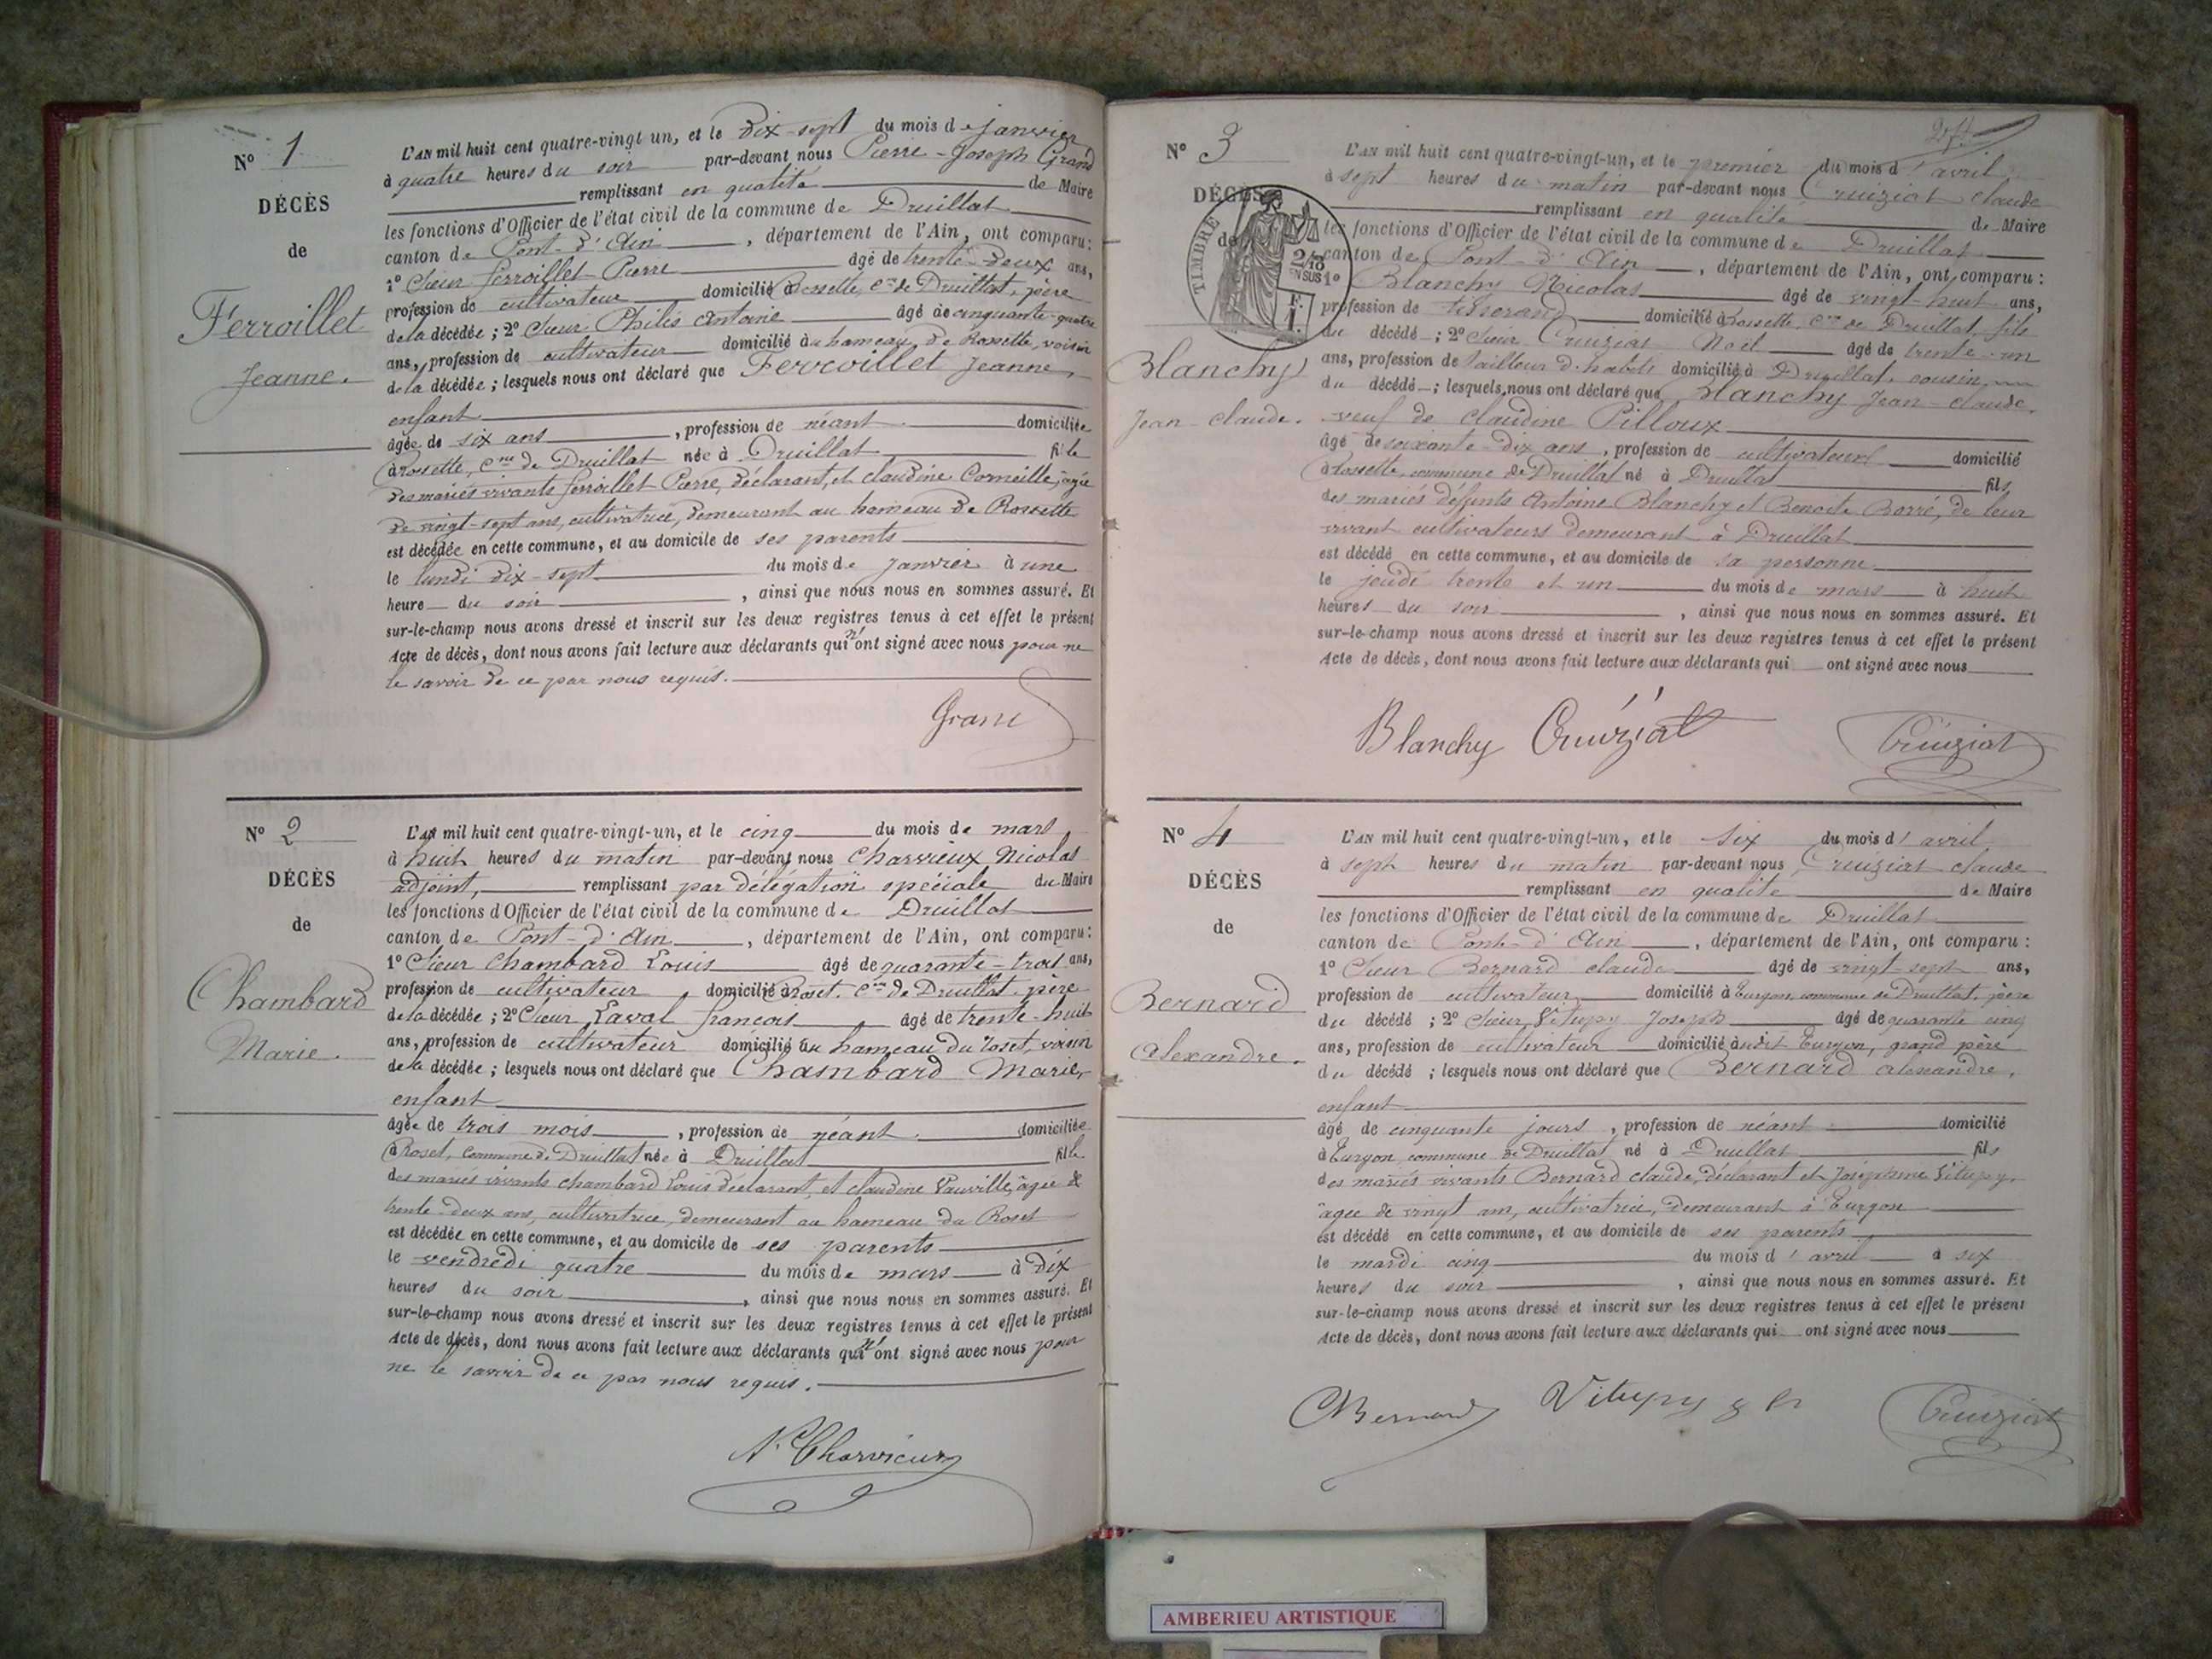 Nº 1
DÉCÈS
de
Ferroillet
Jeanne.
L'AN mil huit cent quatre-vingt un, et le Dix-sept du mois de janvier
à quatre heures du soir par-devant nous Pierre-Joseph Grand
remplissant en qualité de Maire
les fonctions d'Officier de l'état civil de la commune de Druillat
canton de Pont-d'Ain, département de l'Ain, ont comparu:
1º Sieur Ferroillet Pierre âgé de trente-Deux ans,
profession de cultivateur domicilié à Rossette, Cne de Druillat, père
de la décédée; 2º Sieur Philis Antoine âgé de cinquante-quatre
ans, profession de cultivateur domicilié au hameau de Rossette, voisin
de la décédée; lesquels nous ont déclaré que Ferroillet Jeanne,
enfant
âgée de six ans, profession de néant domiciliée
à Rossette, Cne de Druillat née à Druillat fille
des mariés vivants Ferroillet Pierre, déclarant, et claudine Corneille, âgée
de vingt-sept ans, cultivatrice, demeurant au hameau de Rossette
est décédée en cette commune, et au domicile de ses parents
le lundi dix-sept du mois de janvier à une
heure du soir, ainsi que nous nous en sommes assuré. Et
sur-le-champ nous avons dressé et inscrit sur les deux registres tenus à cet effet le présent
Acte de décès, dont nous avons fait lecture aux déclarants qui n'ont signé avec nous pour ne
le savoir de ce par nous requis.
Grand
Nº 2
DÉCÈS
de
Chambard
Marie.
L'AN mil huit cent quatre-vingt-un, et le cinq du mois de mars
à huit heures du matin par-devant nous Charvieux Nicolas
adjoint, remplissant par délégation spéciale du Maire
les fonctions d'Officier de l'état civil de la commune de Druillat
canton de Pont-d'Ain, département de l'Ain, ont comparu:
1º Sieur Chambard Louis âgé de quarante-trois ans,
profession de cultivateur domicilié à Roset, Cne de Druillat, père
de la décédée; 2º Sieur Laval françois âgé de trente-huit
ans, profession de cultivateur domicilié au hameau du Roset, voisin
de la décédée; lesquels nous ont déclaré que Chambard Marie,
enfant
âgée de trois mois, profession de néant domiciliée
à Roset, Commune de Druillat née à Druillat fille
des mariés vivants chambard Louis déclarant, et claudine Vauville, âgée de
trente deux ans, cultivatrice, demeurant au hameau du Roset
est décédée en cette commune, et au domicile de ses parents
le vendredi quatre du mois de mars à dix
heures du soir, ainsi que nous nous en sommes assuré. Et
sur-le-champ nous avons dressé et inscrit sur les deux registres tenus à cet effet le présent
Acte de décès, dont nous avons fait lecture aux déclarants qui n'ont signé avec nous pour
ne le savoir de ce par nous requis.
N. Charvieux
Nº 3
DÉCÈS
de
TIMBRE
2/10
EN SUS
Blanchy
Jean-claude.
L'AN mil huit cent quatre-vingt-un, et le premier du mois d'avril
à sept heures du matin par-devant nous Cruiziat claude
remplissant en qualité de Maire
les fonctions d'Officier de l'état civil de la commune de Druillat
canton de Pont-d'Ain, département de l'Ain, ont comparu:
1º Blanchy Nicolas âgé de vingt huit ans,
profession de tisserand domicilié à Rossette, Cne de Druillat, fils
du décédé; 2º Sieur Cruiziat Noël âgé de trente-un
ans, profession de tailleur d'habits domicilié à Druillat, cousin
du décédé; lesquels nous ont déclaré que Blanchy Jean-claude,
veuf de claudine Pilloux
âgé de soixante-dix ans, profession de cultivateur domicilié
à Rossette, commune de Druillat né à Druillat fils
des mariés défunts Antoine Blanchy et Benoite Borré, de leur
vivant cultivateurs demeurant à Druillat
est décédé en cette commune, et au domicile de sa personne
le jeudi trente et un du mois de mars à huit
heures du soir, ainsi que nous nous en sommes assuré. Et
sur-le-champ nous avons dressé et inscrit sur les deux registres tenus à cet effet le présent
Acte de décès, dont nous avons fait lecture aux déclarants qui ont signé avec nous
Blanchy Cruiziat Cruiziat
Nº 4
DÉCÈS
de
Bernard
Alexandre.
L'AN mil huit cent quatre-vingt-un, et le six du mois d'avril
à sept heures du matin par-devant nous Cruiziat claude
remplissant en qualité de Maire
les fonctions d'Officier de l'état civil de la commune de Druillat
canton de Pont-d'Ain, département de l'Ain, ont comparu:
1º Sieur Bernard claude âgé de vingt-sept ans,
profession de cultivateur domicilié à Turgon, commune de Druillat, père
du décédé; 2º Sieur Vitupy Joseph âgé de quarante cinq
ans, profession de cultivateur domicilié audit Turgon, grand père
du décédé; lesquels nous ont déclaré que Bernard alexandre,
enfant
âgé de cinquante jours, profession de néant domicilié
à Turgon, commune de Druillat né à Druillat fils
des mariés vivants Bernard claude, déclarant et Joséphine Vitupy,
âgée de vingt ans, cultivatrice, demeurant à Turgon
est décédé en cette commune, et au domicile de ses parents
le mardi cinq du mois d'avril à six
heures du soir, ainsi que nous nous en sommes assuré. Et
sur-le-champ nous avons dressé et inscrit sur les deux registres tenus à cet effet le présent
Acte de décès, dont nous avons fait lecture aux déclarants qui ont signé avec nous
CBernard Vitupy Cruiziat
AMBERIEU ARTISTIQUE